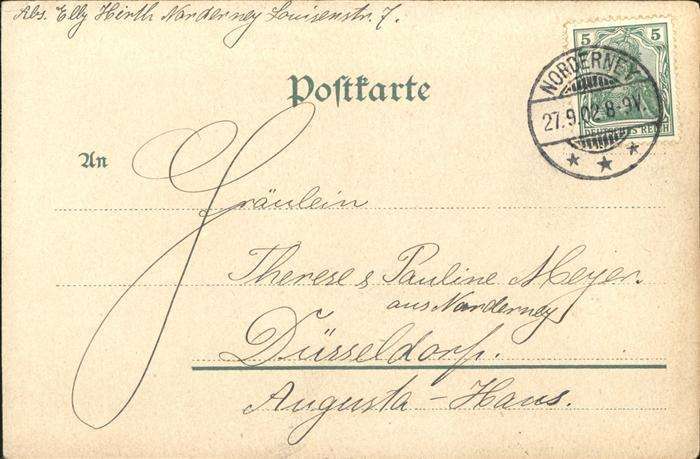 Abs. Elly Hirth Norderney Louisenstr. 7.
5 5
NORDERNEY
27.9.02.8-9V.
DEUTSCHES REICH
Postkarte
An
Fräulein
Therese & Pauline Meyer.
aus Norderney
Düsseldorf.
Augusta-Haus.